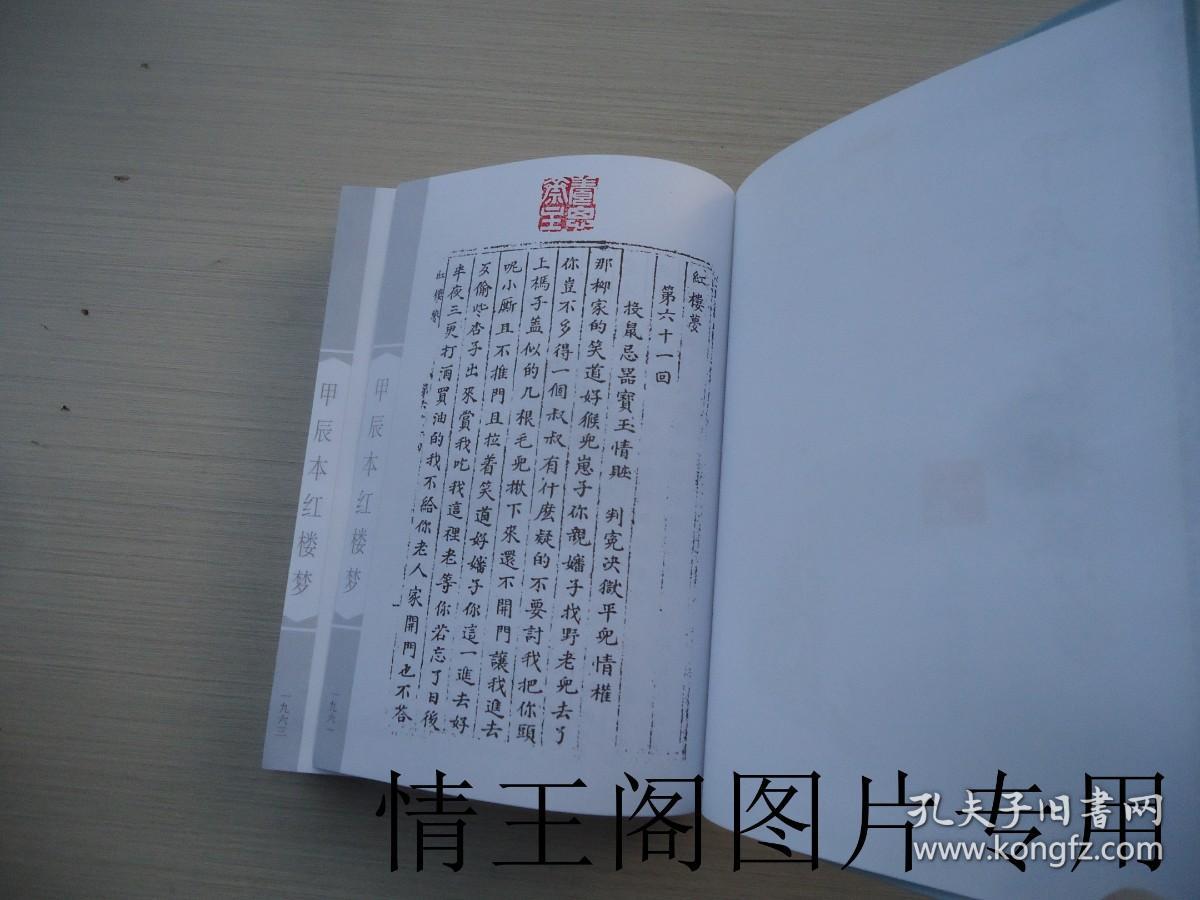 紅樓夢
第六十一回
投鼠忌器寶玉情賍　判寃决獄平兒情權
那柳家的笑道好猴兒崽子你親嬸子找野老兒去了
你豈不多得一個叔叔有什麽疑的不要討我把你頭
上榪子盖似的几根毛兒揪下來還不開門讓我進去
呢小厮且不推門且拉着笑道好嬸子你這一進去好
歹偷些杏子出來賞我吃我這裡老等你若忘了日後
半夜三更打酒買油的我不給你老人家開門也不答
紅樓夢
甲辰本红楼梦
一九六一
甲辰本红楼梦
一九六三
情王阁图片专用
孔夫子旧书网
www.kongfz.com